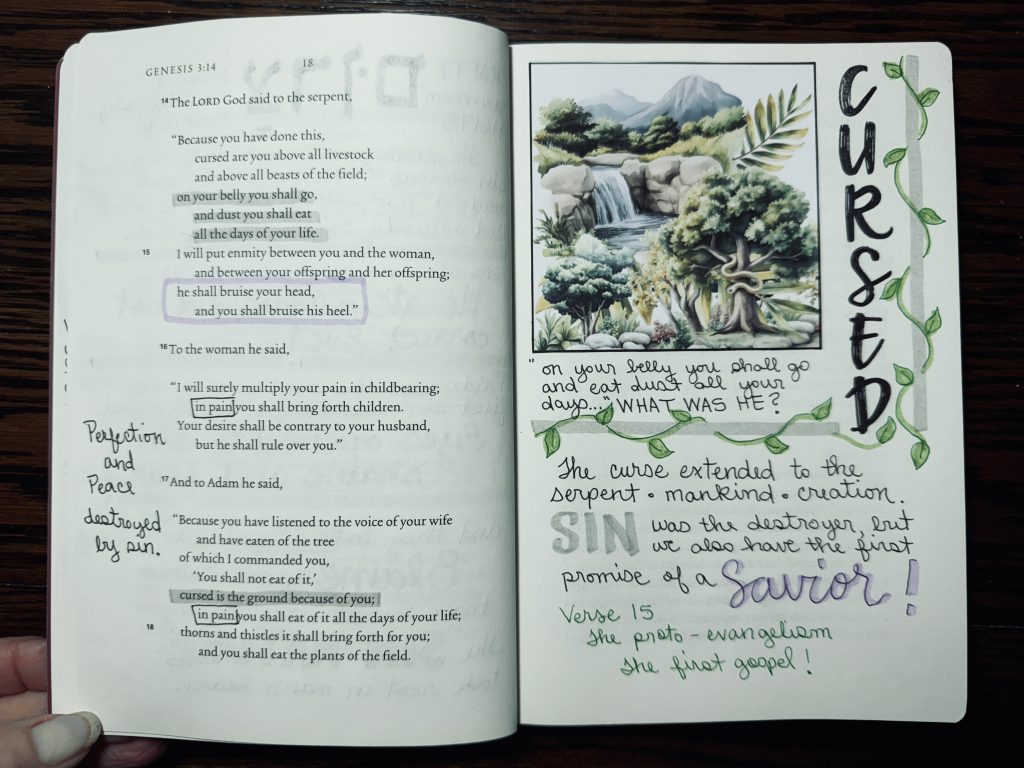 GENESIS 3:14
18
14 The LORD God said to the serpent,
“Because you have done this,
cursed are you above all livestock
and above all beasts of the field;
on your belly you shall go,
and dust you shall eat
all the days of your life.
15 I will put enmity between you and the woman,
and between your offspring and her offspring;
he shall bruise your head,
and you shall bruise his heel.”
16 To the woman he said,
“I will surely multiply your pain in childbearing;
in pain you shall bring forth children.
Your desire shall be contrary to your husband,
but he shall rule over you.”
17 And to Adam he said,
“Because you have listened to the voice of your wife
and have eaten of the tree
of which I commanded you,
‘You shall not eat of it,’
cursed is the ground because of you;
in pain you shall eat of it all the days of your life;
18 thorns and thistles it shall bring forth for you;
and you shall eat the plants of the field.
Perfection
and
Peace
destroyed
by sin.
CURSED
"on your belly you shall go
and eat dust all your
days..." WHAT WAS HE?
The curse extended to the
serpent • mankind • creation.
SIN was the destroyer, but
we also have the first
promise of a Savior!
Verse 15
The proto-evangelism
The first gospel!